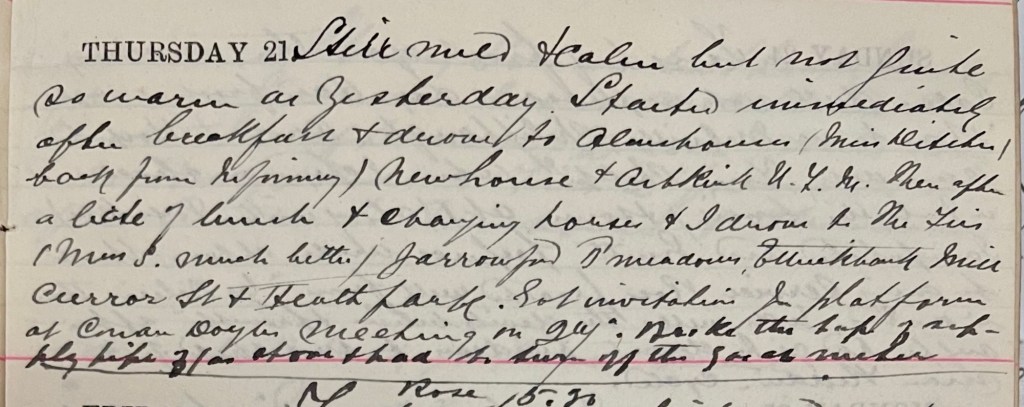 THURSDAY 21 Still mild & calm but not quite
so warm as yesterday Started immediately
after breakfast & drove to Almshouses (Miss
back from Infirmary) Newhouse & U. F. M. Then after
a bite of lunch & changing horses & I drove to The Firs
(Miss S. much better) Yarrowford P meadows, Ettrickbank Mill
Curror St & Heathpark. Got invitation for platform
at Conan Doyles meeting on 24th. Broke the tap of sup-
ply pipe of gas stove & had to turn off the gas at meter
Rose 15.20